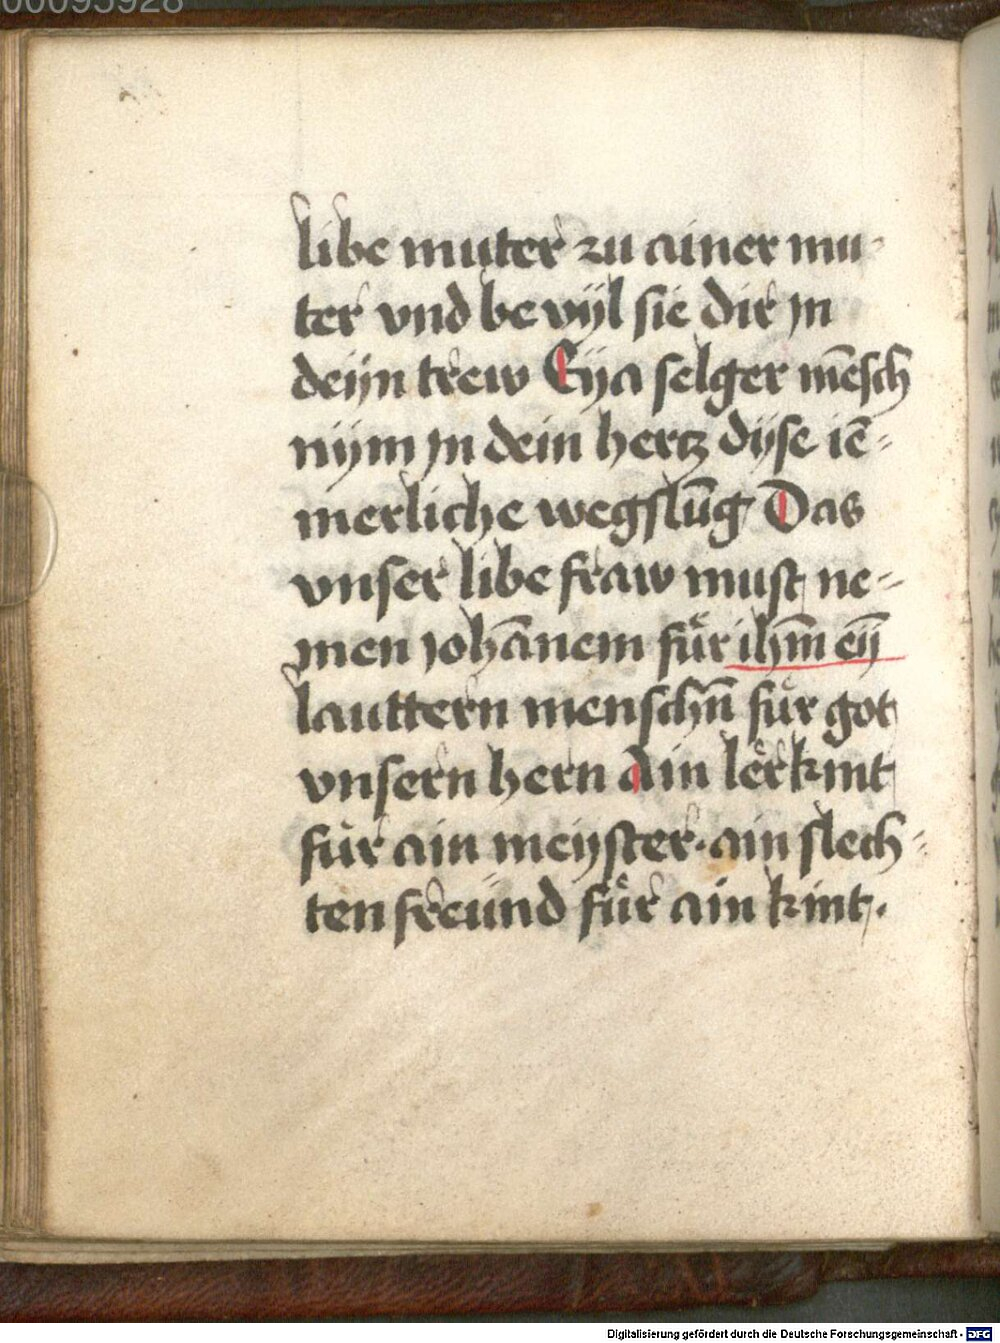 00095928
libe muter zu ainer mu-
ter vnd bevijl sie dir jn
deijn trew Eija selger mēsch
nijm jn dein hertz dijse iē-
merliche wegslūg Das
vnser libe fraw must ne-
men johānem für ihm̄ eij̄
lauttern menschn̄ für got
vnsern hern Ain lerkint
für ain meijster· ain slech-
ten freünd für ain kint.
Digitalisierung gefördert durch die Deutsche Forschungsgemeinschaft - DFG